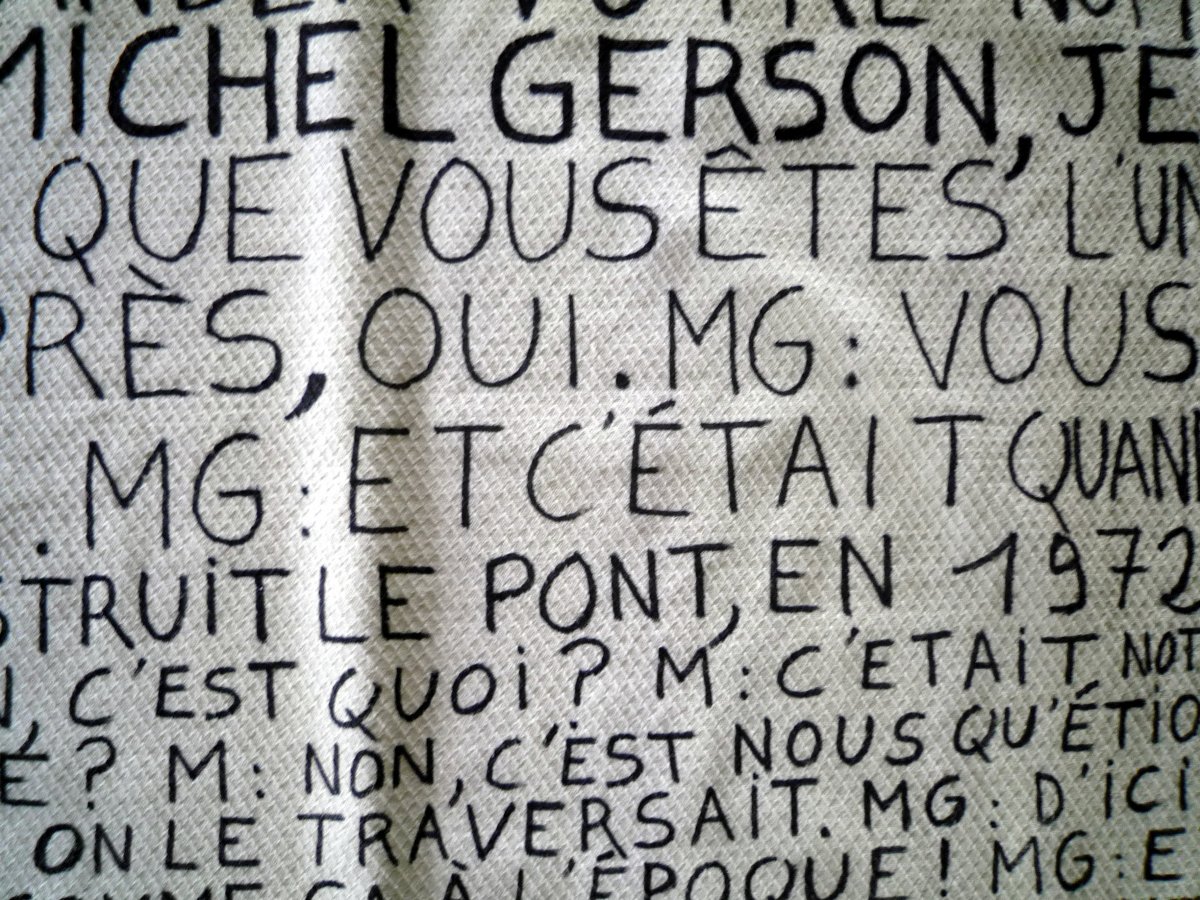 VOTRE
MICHEL GERSON, JE
QUE VOUS ÊTES L'UN
PRÈS, OUI. MG: VOUS
. MG: ET C'ÉTAIT QUAN
STRUIT LE PONT, EN 1972
, C'EST QUOI? M: C'ETAIT NOT
É? M: NON, C'EST NOUS QU'ÉTIO
ON LE TRAVERSAIT. MG: D'ICI
COMME ÇA À L'ÉPOQUE! MG: E